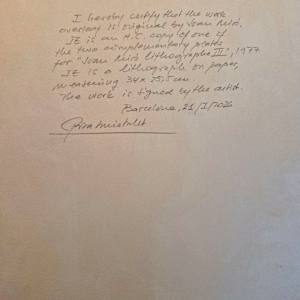 I hereby certify that the work
overleaf is original by Joan Miró.
It is an H.C. copy of one of
the two complementary plates
for "Joan Miró lithographe III", 1977
It is a lithograph on paper,
measuring 34 x 25,5 cm.
The work is signed by the artist.
Barcelona, 21/I/2020